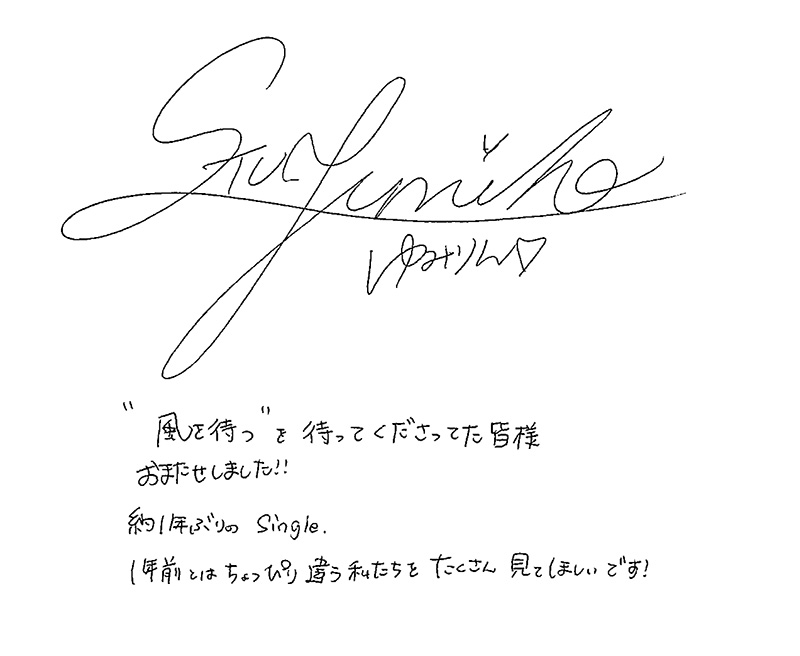 STU Yumiko
ゆみりん♡
"風を待つ"を待ってくださってた皆様
おまたせしました!!
約1年ぶりの Single.
1年前とはちょっぴり違う私たちをたくさん見てほしいです!